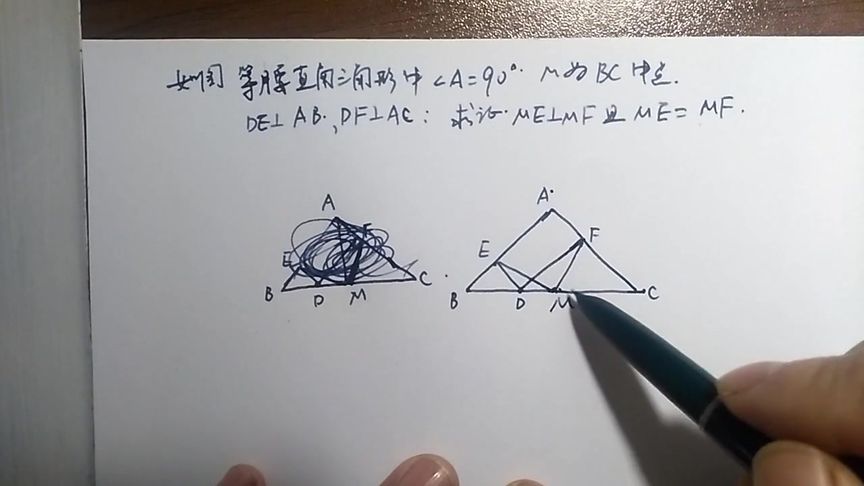 如图 等腰直角三角形中∠A=90°. M为BC中点.
DE⊥AB.,DF⊥AC: 求证.ME⊥MF且ME=MF.
A
F
E
B
D
M
C
A
E
F
B
D
M
C